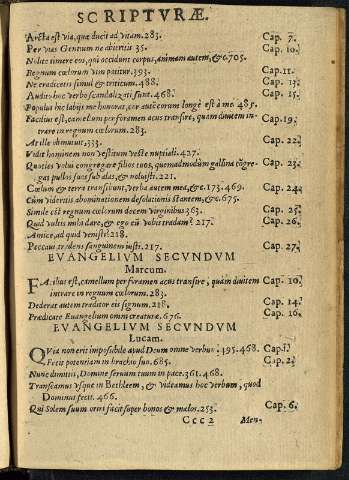 SCRIPTVRÆ.
Arcta est via, quæ ducit ad vitam. 283. Cap. 7.
Per vias Gentium ne abieritis 35. Cap. 10.
Nolite timere eos, qui occidunt corpus, animam autem, &c. 705.
Regnum cœlorum vim patitur. 393. Cap. 11.
Ne eradicetis simul & triticum. 488. Cap. 13.
Audito hoc verbo scandalizati sunt. 468. Cap. 15.
Populus hic labijs me honorat, cor autē eorum longè est à me. 485.
Facilius est, camelum per foramen acus transire, quàm diuitem in- Cap. 19.
trare in regnum cœlorum. 283.
At ille obmutuit. 333. Cap. 22.
Vidit hominem non vestitum veste nuptiali. 427.
Quoties volui congregare filios tuos, quemadmodùm gallina cōgre- Cap. 23.
gat pullos suos sub alas, & noluisti. 221.
Cœlum & terra transibunt, verba autem mea, &c. 173. 469. Cap. 24.
Cùm videritis abominationem desolationis stantem, &c. 675.
Simile est regnum cœlorum decem virginibus 363. Cap. 25.
Quid vultis mihi dare, & ego eū vobis tradam? 217. Cap. 26.
Amice, ad quid venisti? 218.
Peccaui tradens sanguinem iusti. 217. Cap. 27.
EVANGELIVM SECVNDVM
Marcum.
FAcilius est, camelum per foramen acus transire, quàm diuitem Cap. 10.
intrare in regnum cœlorum. 283.
Dederat autem traditor eis signum. 218. Cap. 14.
Prædicate Euangelium omni creaturæ. 676. Cap. 16.
EVANGELIVM SECVNDVM
Lucam.
QVia non erit impossibile apud Deum omne verbum. 395. 468. Cap. 1.
Fecit potentiam in brachio suo. 685. Cap. 2.
Nunc dimittis, Domine seruum tuum in pace. 361. 468.
Transeamus vsque in Bethleem, & videamus hoc verbum, quod
Dominus fecit. 466.
Qui Solem suum oriri facit super bonos & malos. 253. Cap. 6.
Ccc 2 Men-